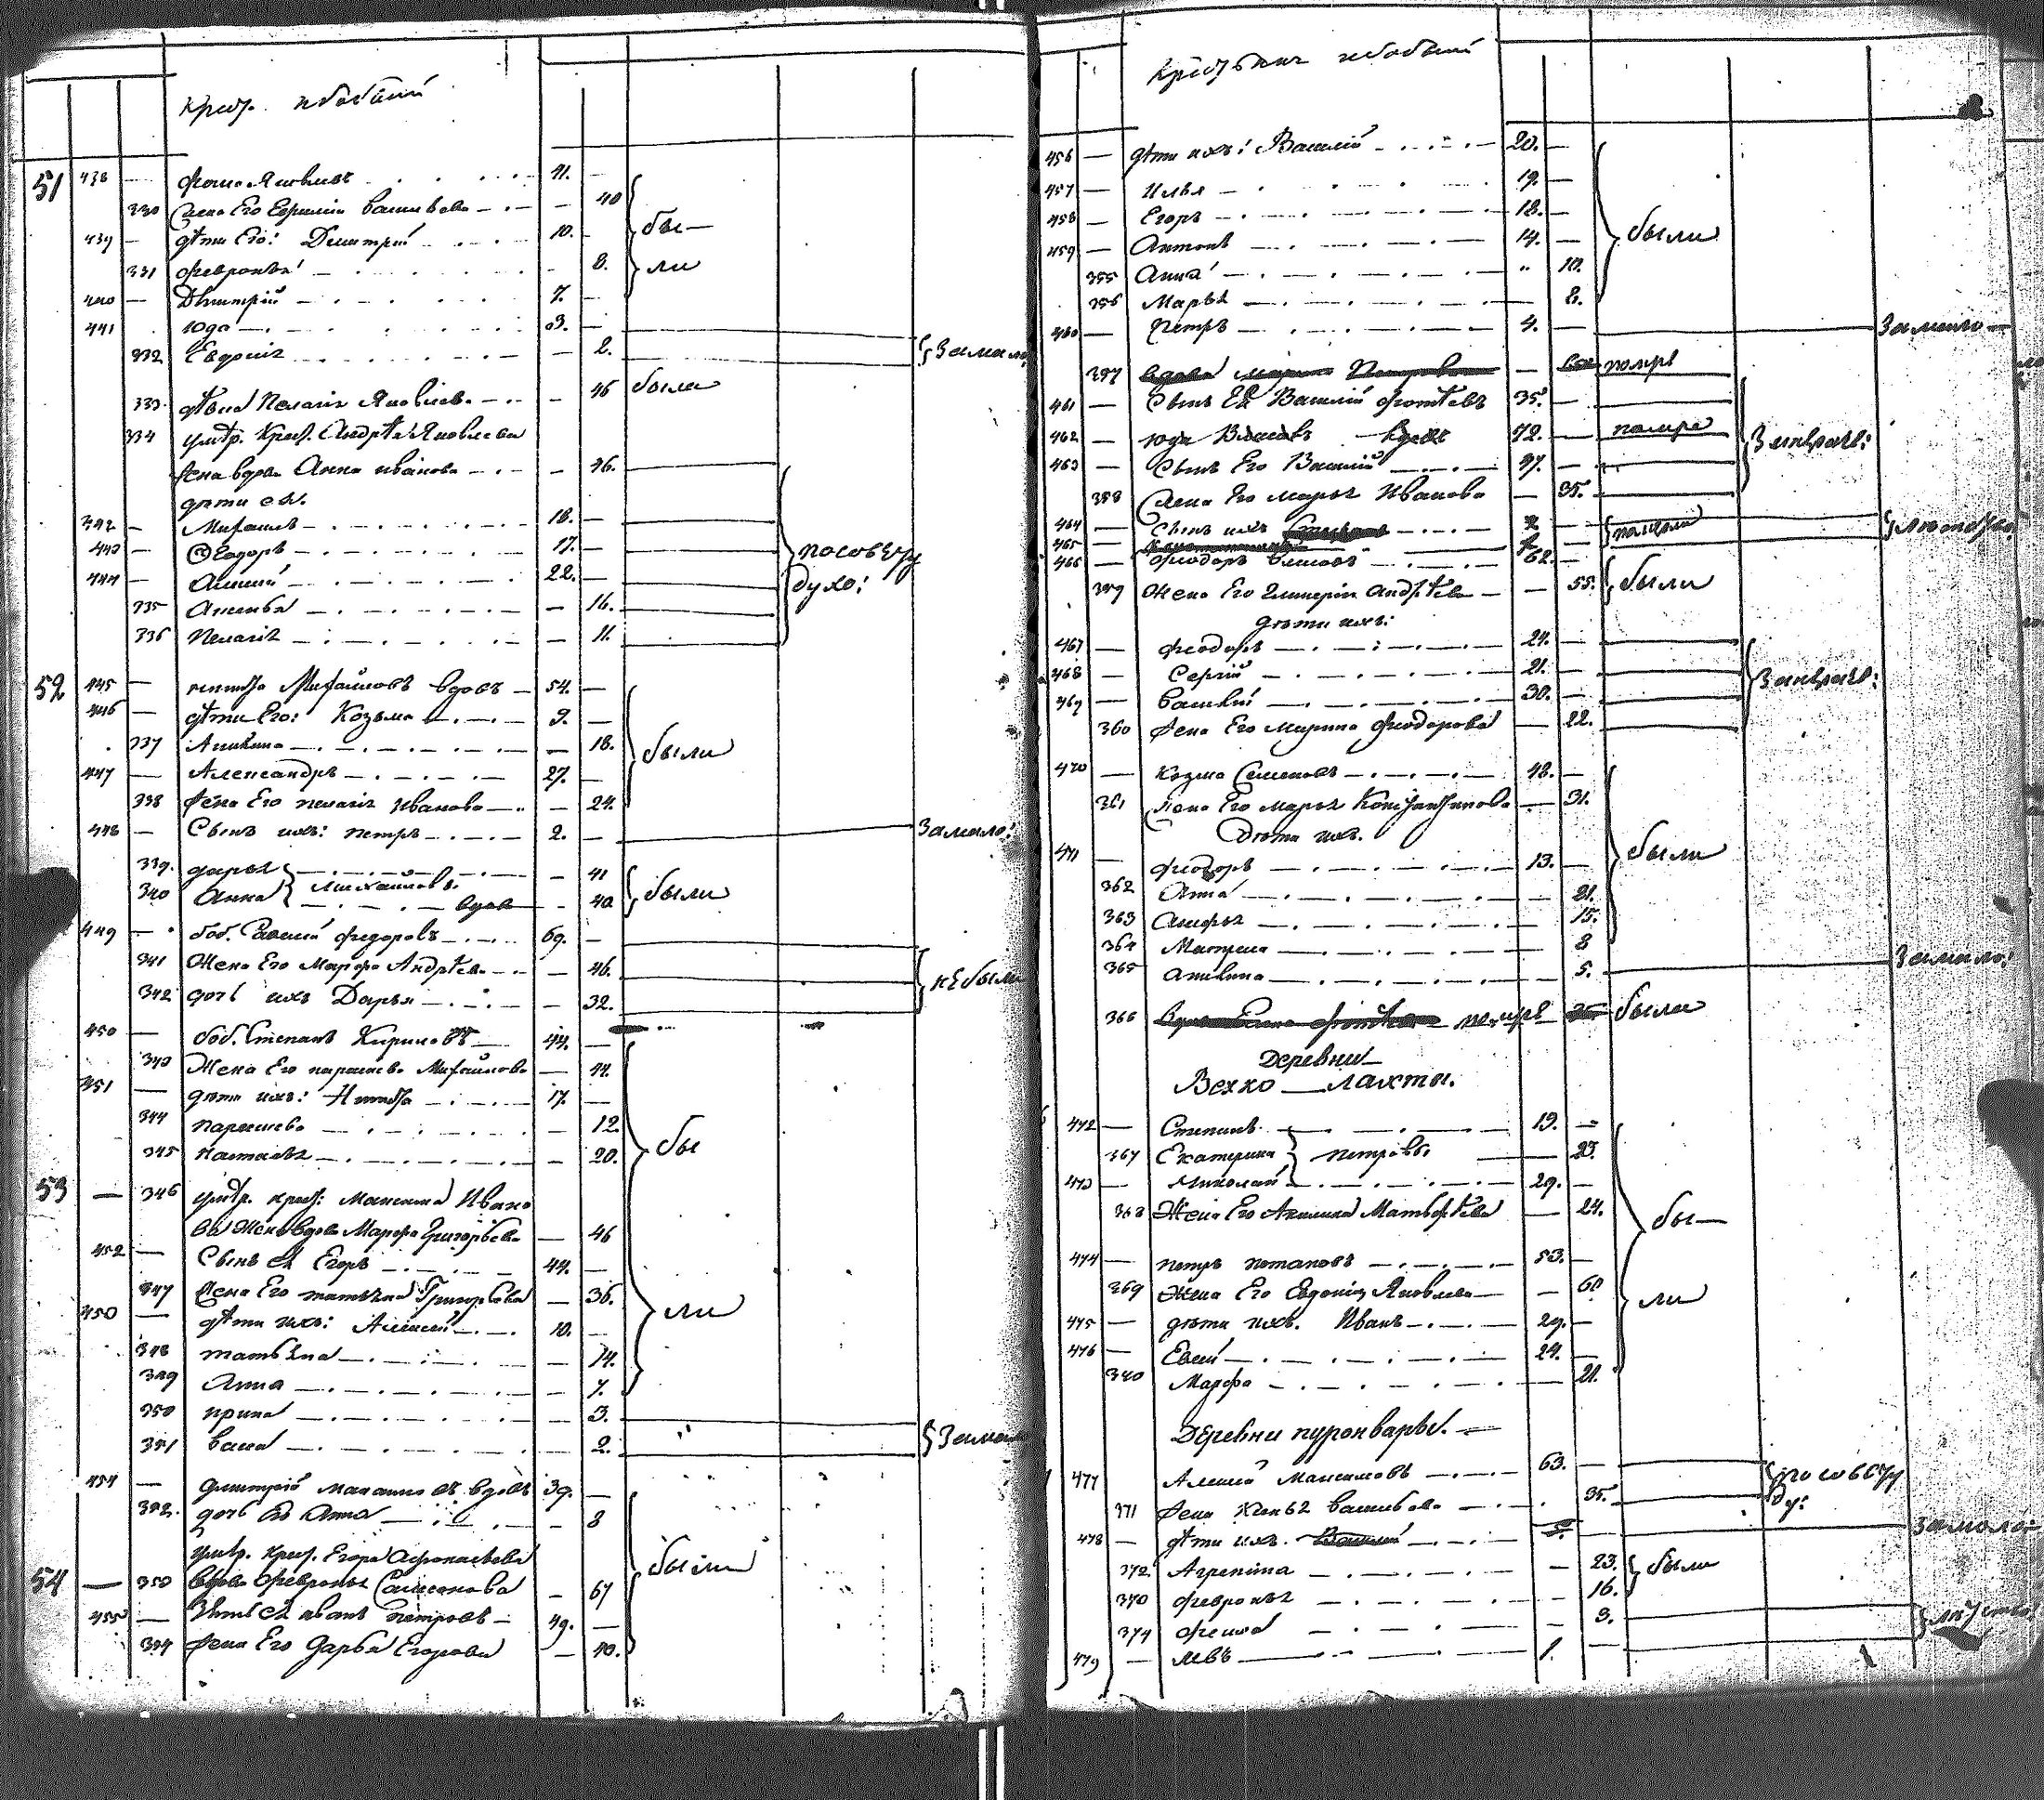 Крест. и бобыли
51 438 — Фома Яковлевъ 41. —
330 Жена Его Евфимія Васильева — 40
439 — дѣти Его: Димитрій 10. —
331 Февронья — 8. бы—
440 — Дмитрій 7. — ли
441 Юда 03. —
332 Евдокія — 2. За мало
333 дѣвка Пелагія Яковлева — 46 были
334 умер. Крест. Андрѣя Яковлева
жена вдова Анна Иванова — 36.
дѣти ея.
342 — Михаилъ 18. —
443 — Ѳеодоръ 17. — по совѣту
444 — Алексій 22. — духо:
335 — 16.
336 Пелагія — 11.
52 445 — Михайловъ вдовъ — 54. —
446 — дѣти Его: Козьма 9. —
337 Акилина — 18. были
447 — Александръ 27. —
338 Жена Его Пелагія Иванова — 24.
448 — Сынъ ихъ: Петръ 2. — За мало:
339. Дарья — 41
340 Анна Михайловы. вдова — 40 были
449 — боб. Василій Федоровъ 69. —
341 Жена Его Марфа Андрѣева — 46. не были
342 дочь ихъ Дарья — 32.
450 — боб. Степанъ Кириловъ 44. —
343 Жена Его Параскева Михайлова — 44.
351 — дѣти ихъ: Никита 17. —
344 Параскева — 12
345 Настасья — 20. бы
53 — 346 умер. крест: Максима Ивано
ва Жена вдова Марфа Григорьева — 46
452 — Сынъ ея Егоръ 44. —
347 Жена Его Татьяна Григорьева — 36. ли
450 — дѣти ихъ: Алексѣй 10. —
348 Татьяна — 14.
349 Анна — 7.
350 Ирина — 3.
351 — 2. За мало
454 — Дмитрій вдовъ 39. —
352. дочь Его Анна — 8
умер. Крест. Егора Афанасьева были
54 — 353 вдова Февронья Семенова — 67
455 — Зять ея Иванъ Петровъ — 49. —
354 Жена Его Дарья Егорова — 40.
Крестьяне и бобыли
456 — дѣти ихъ: Василій 20. —
457 — Илья 19. —
458 — Егоръ 18. —
459 — Антонъ 14. — были
355 Анна " 10.
356 Марья 8.
460 — Петръ 4. — За мало
357 вдова — померъ
461 — Сынъ Ея Василій 35. —
462 — Юда 72. — померъ
463 — Сынъ Его Василій 37. — За нерадѣ:
358 Жена Его Марья Иванова — 35.
464 — Сынъ ихъ 2 —
465 —
466 — Феодоръ 62. —
359 Жена Его Андрѣева — 55. были
дѣти ихъ:
467 — Феодоръ 24. —
468 — Сергій 21. —
469 — Василій 30. — За нерадѣ:
360 Жена Его Марина Феодорова — 22.
470 — Козма Семеновъ 48. —
361 Жена Его Марья Константинова — 31.
Дѣти ихъ.
471 — Феодоръ 13. — были
362 Анна — 21.
363 — 15.
364 Матрена — 8
365 Акилина — 5. За мало:
366 померъ были
Деревни
Вехко — Лахты.
472 — Степанъ 19. —
367 Екатерина Петровы 23.
473 — Николай 29. —
368 Жена Его Акилина Матвѣева — 24. бы—
474 — Петръ Потаповъ 53. —
369 Жена Его Евдокія Яковлева — 60 ли
475 — дѣти ихъ. Иванъ 29. —
476 — 24. —
340 Марфа — 21.
Деревни Пуронварьи.
477 Алексій Максимовъ 63. — по совѣту
371 Жена Ксенья Васильева 35. ду:
478 — дѣти ихъ. Василій 5. — За мало:
372 Агрепина — 23. были
370 Февронья — 16.
374 Фекла — 3.
479 — Левъ 1. —